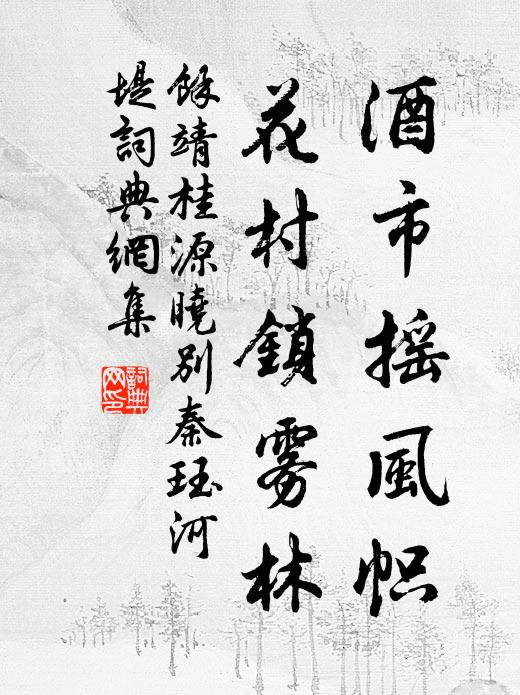 酒市摇風帜
花村鎖雾林
餘靖桂源曉别秦珏河
堤詞典網集
詞典网印